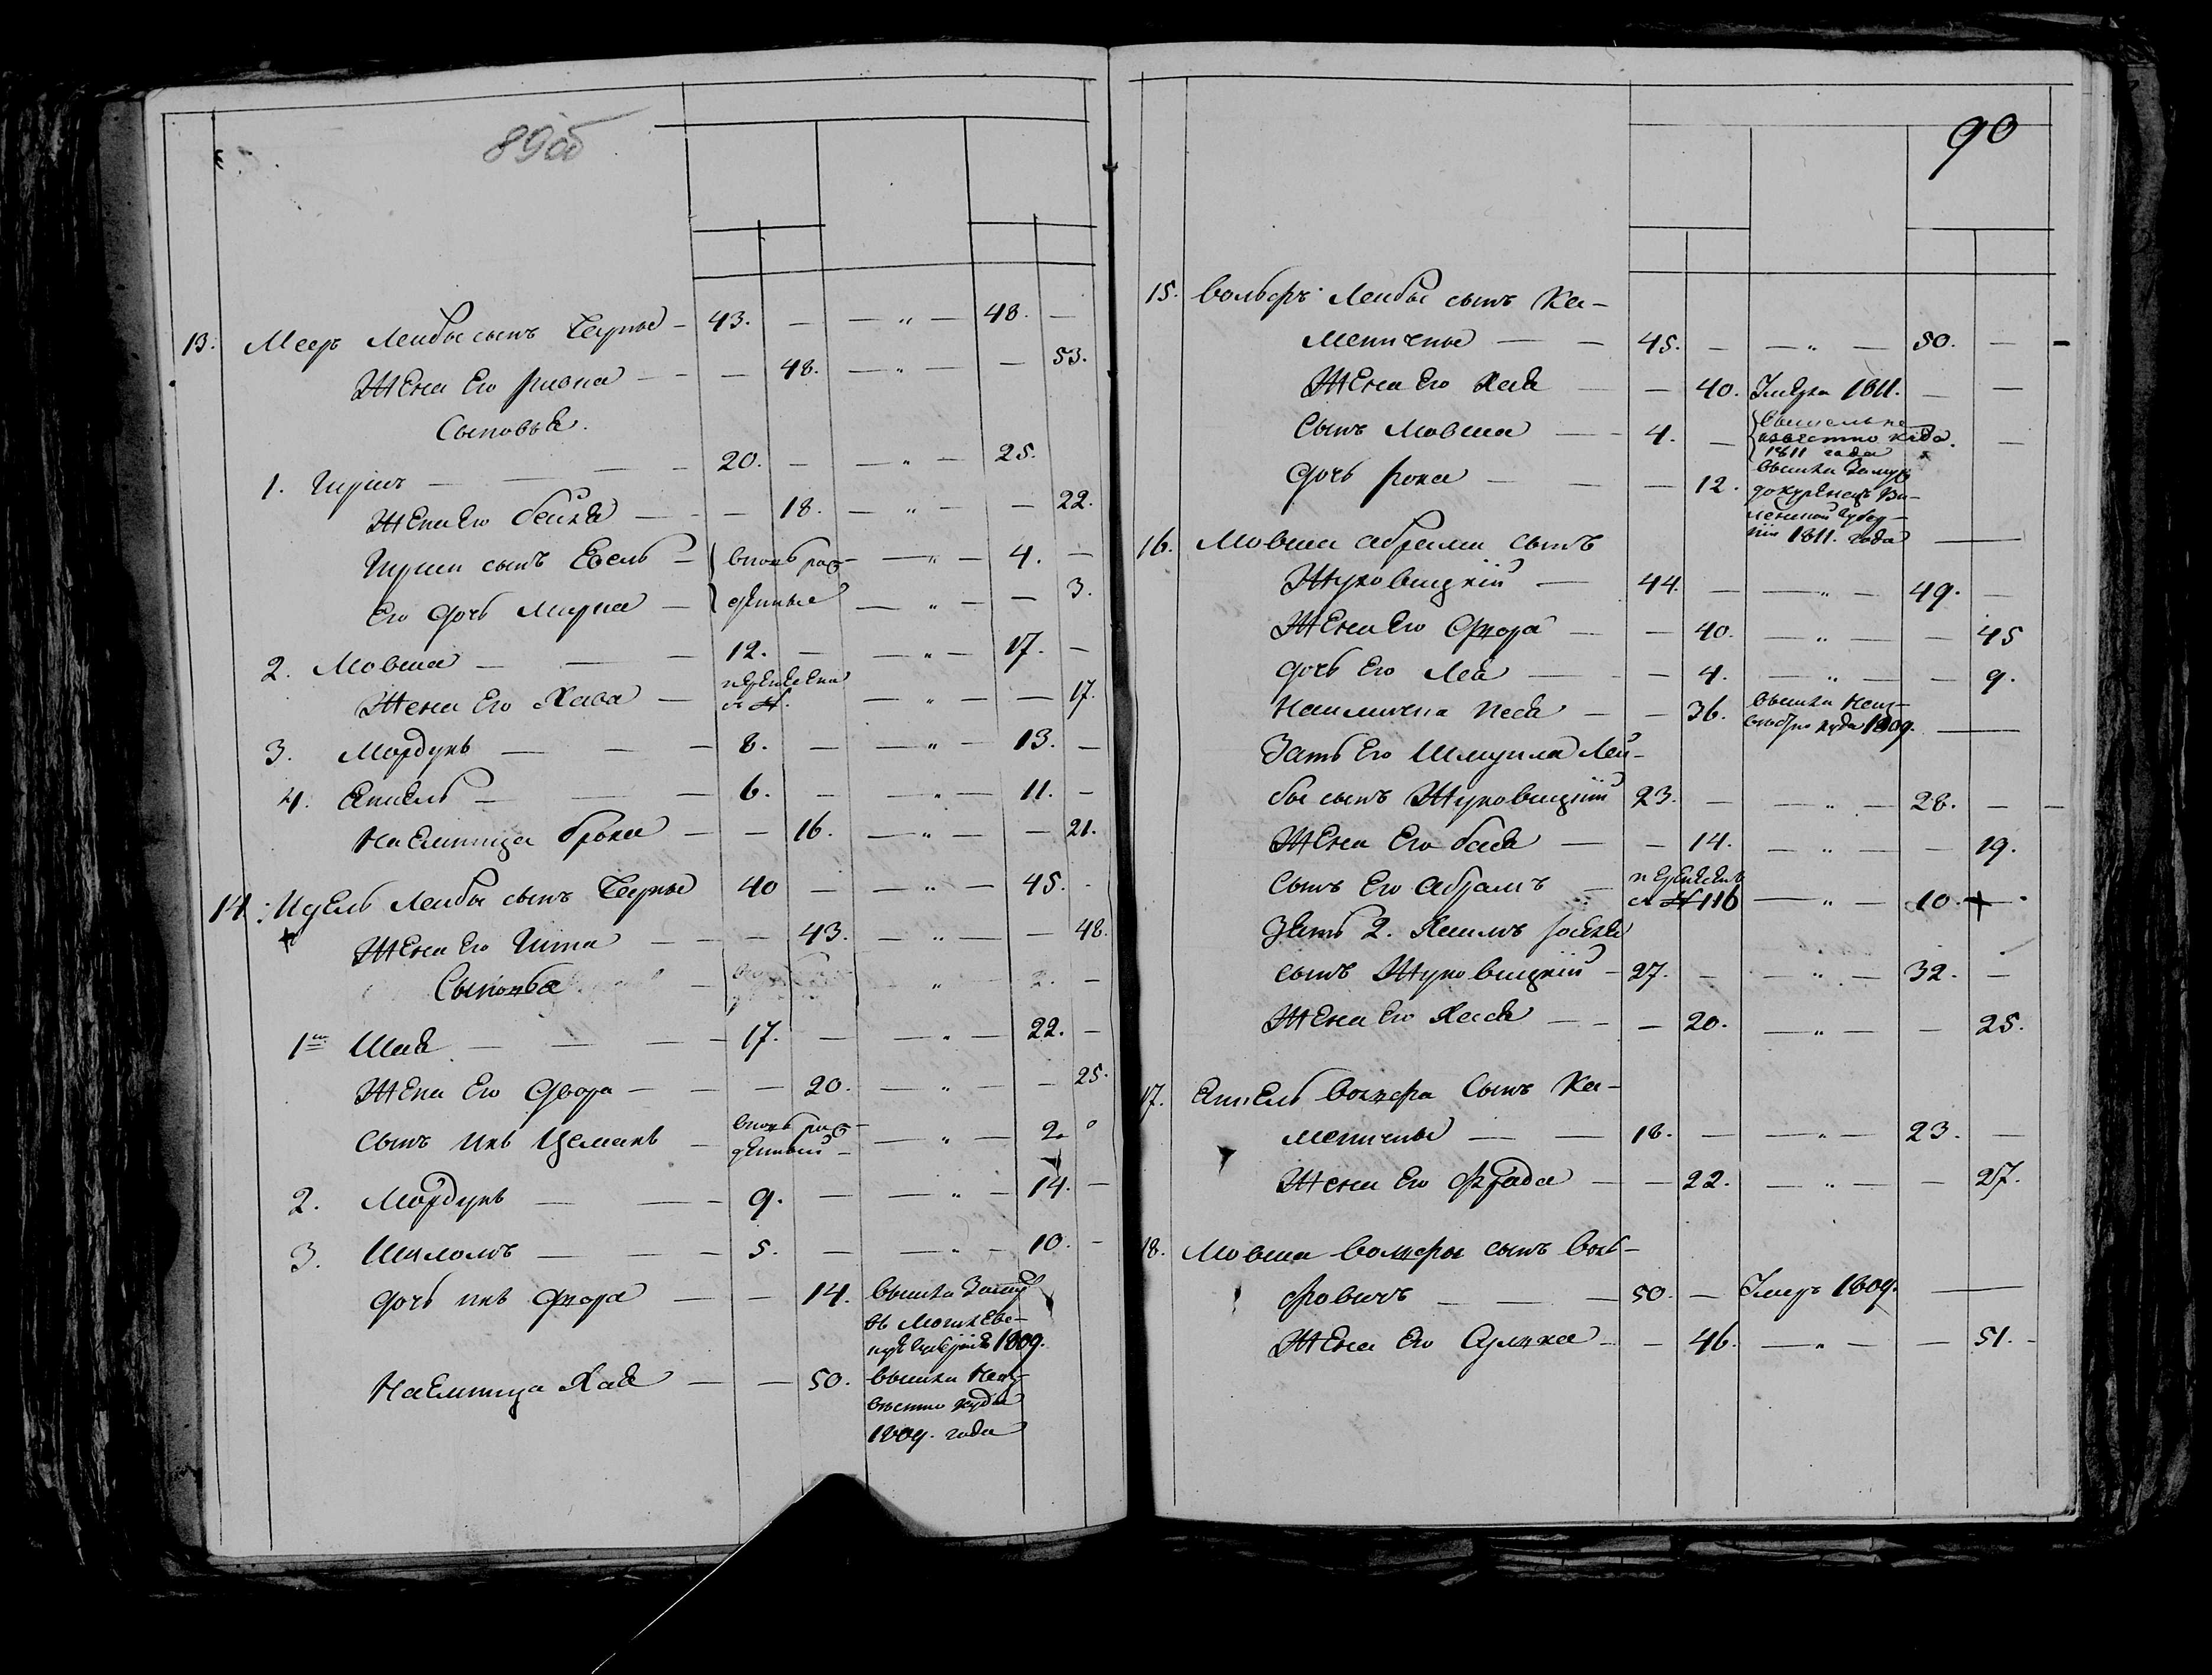 89об
13. Меер Лейбы сынъ Черные — 43. — — „ — 48. —
Жена Его Ривка — — 48. — „ — — 53.
Сыновья.
1. Гирша — 20. — — „ — 25.
Жена Его Бейля — — 18. — „ — — 22.
Гирши сынъ Евель — вновь рож- — „ — 4. —
Его дочь Мирка — денные — „ — — 3.
2. Мовша — 12. — — „ — 17. —
Жена Его Хава — — „ — — 17.
3. Мордухъ — 8. — — „ — 13. —
4. Анкель — 6. — — „ — 11. —
Наемница Броха — — 16. — „ — — 21.
14. Идель Лейбы сынъ Черные 40 — — „ — 45. -
Жена Его Гита — — 43. — „ — — 48.
Сыновья — „ 2. —
1й Шая — 17. — — „ — 22. —
Жена Его Двора — — 20. — „ — — 25.
Сынъ ихъ Цемахъ — вновь рож-
денный — — „ — 2.
2. Мордухъ — 9. — — „ — 14. —
3. Шоломъ — 5. — — „ — 10. -
Дочь ихъ Фрода — — 14. вышла Замуж
въ Могилев-
1809.
Наемница Хая — — 50. вышла неиз-
вестно куда
1809. года
90
15. Вольфъ Лейбы сынъ Ка-
меничные — 45. — — „ — 50. — —
Жена Его Хая — — 40. Умерла 1811. — —
Сынъ Мовша — 4. — вышелъ не
известно куда. —
1811 года
Дочь Роха — — 12. вышла Замуж
Ви-
ленской Губер-
нии 1811. года —
16. Мовша Абрама сынъ
Жуховицкій — 44. — — „ — 49. —
Жена Его Фрода — — 40. — „ — — 45
Дочь Его Лея — — 4. — „ — — 9.
Наимичка Песя — — 36. вышла неиз-
вестно куда 1809. —
Зять Его Шмуила Лей-
бы сынъ Жуховицкій 23. — — „ — 28. — —
Жена Его Бася — — 14. — „ — — 19.
Сынъ Его Абрамъ — 116 — „ — 10. + .
Зять 2. Хаимъ
сынъ Жуховицкій — 27. — — „ — 32. —
Жена Его Хася — — 20. — „ — — 25.
17. Анкель Вольфа Сынъ Ка-
меничные — 18. — — „ — 23. —
Жена Его Фрада — — 22. — „ — — 27.
18. Мовша Вольфы сынъ Воль-
фовичъ — 50. — Умеръ 1809. —
Жена Его — — 46. — „ — — 51. -